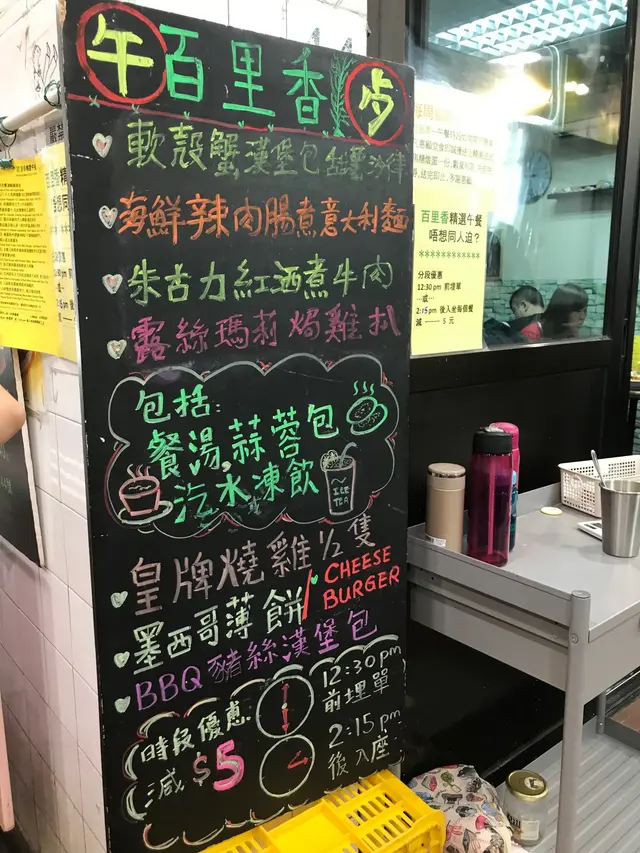 午百里香步
軟殼蟹漢堡包
海鮮辣肉腸煮意大利麵
朱古力紅酒煮牛肉
露絲瑪莉焗雞扒
包括:
餐湯,蒜蓉包
汽水凍飲
ICE
TEA
皇牌燒雞½隻
墨西哥薄餅/CHEESE
BURGER
BBQ豬絲漢堡包
時段優惠
減$5
12:30pm
前埋單
2:15pm
後入座
百里香精選午餐
唔想同人迫?
************
分段優惠
12:30 pm 前埋單
…或…
2:15pm 後入坐每個餐
減 —— 5 元